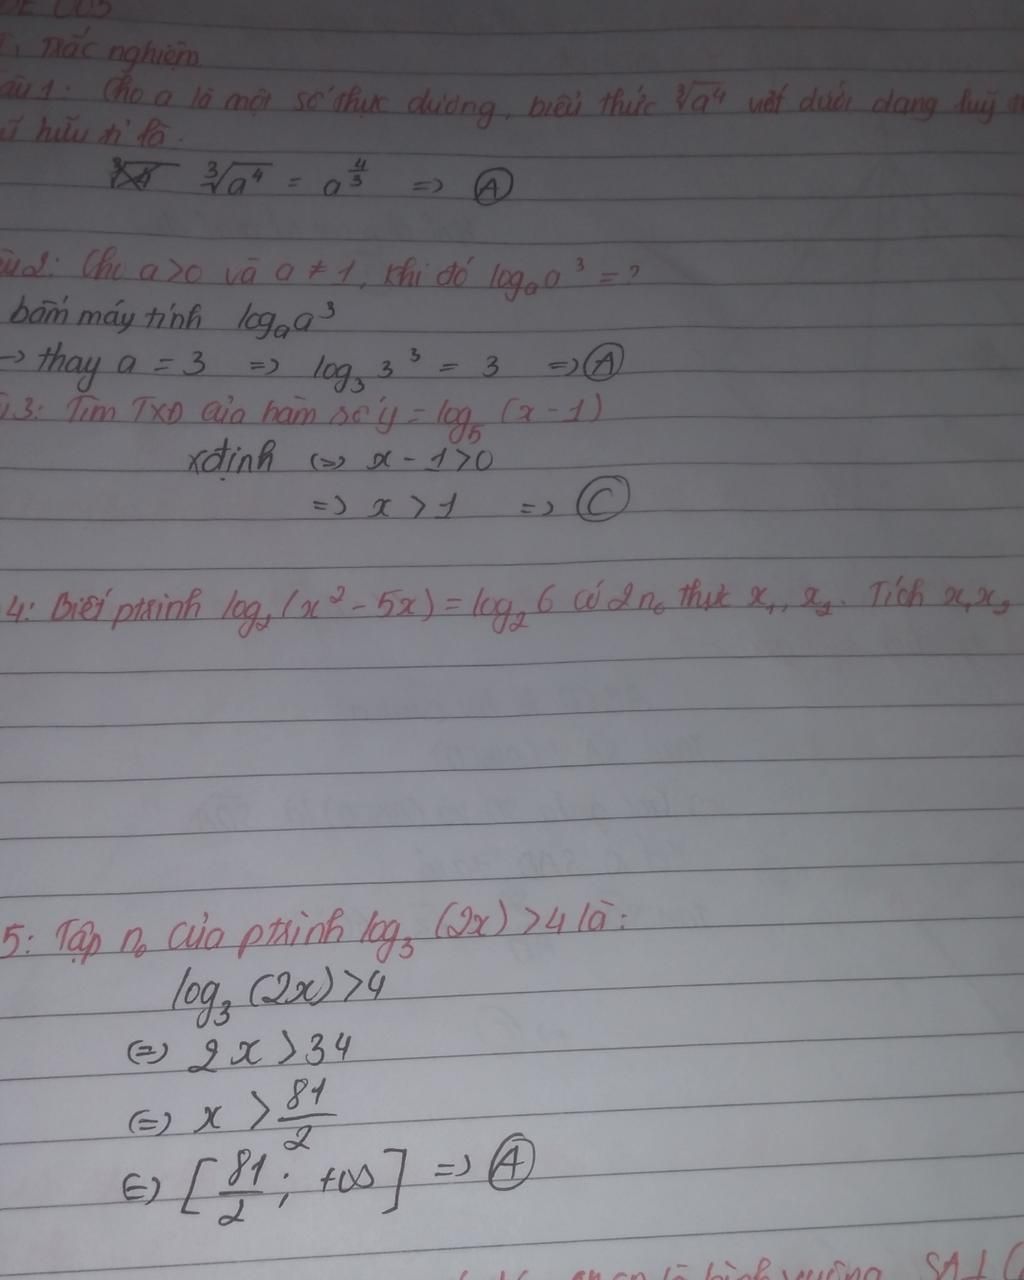 ĐỀ 003
I, Trắc nghiệm
Câu 1: Cho a là một số thực dương, biểu thức ∛a⁴ viết dưới dạng luỹ
hữu tỉ là.
∛a⁴ = a^(4/3) => Ⓐ
Câu 2: Cho a>0 và a ≠ 1, khi đó logₐa³ = ?
bấm máy tính logₐa³
-> thay a = 3 => log₃3³ = 3 => Ⓐ
3: Tìm TXĐ của hàm số y = log₅ (x-1)
xđịnh (=> x - 1>0
=> x > 1 => Ⓒ
4: Biết ptrình log₂(x² - 5x) = log₂6 có 2 n₀ thực x₁, x₂. Tích x₁x₂
5: Tập n₀ của ptrình log₃ (2x) >4 là:
log₃ (2x) >4
(=) 2x > 34
(=) x > 81/2
(=) [81/2 ; +∞] => Ⓐ
là hình vuông SA⊥(